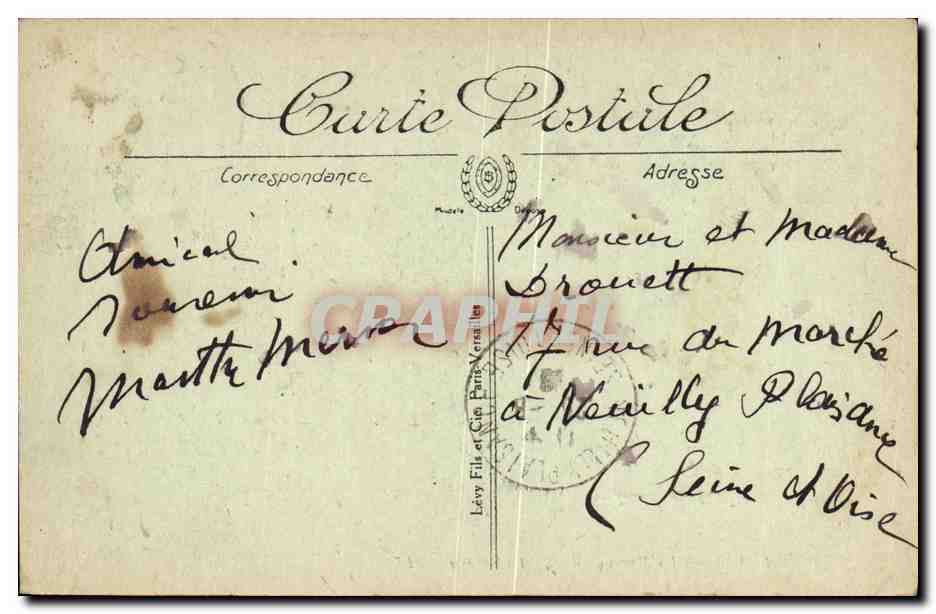 Carte Postale
Correspondance
Adresse
Modèle Déposé
Amical
souvenir
Marthe
Monsieur et Madame
Drouett
17 rue du Marché
à Neuilly Plaisance
(Seine et Oise
Lévy Fils et Cie, Paris-Versailles
CRAPHIL